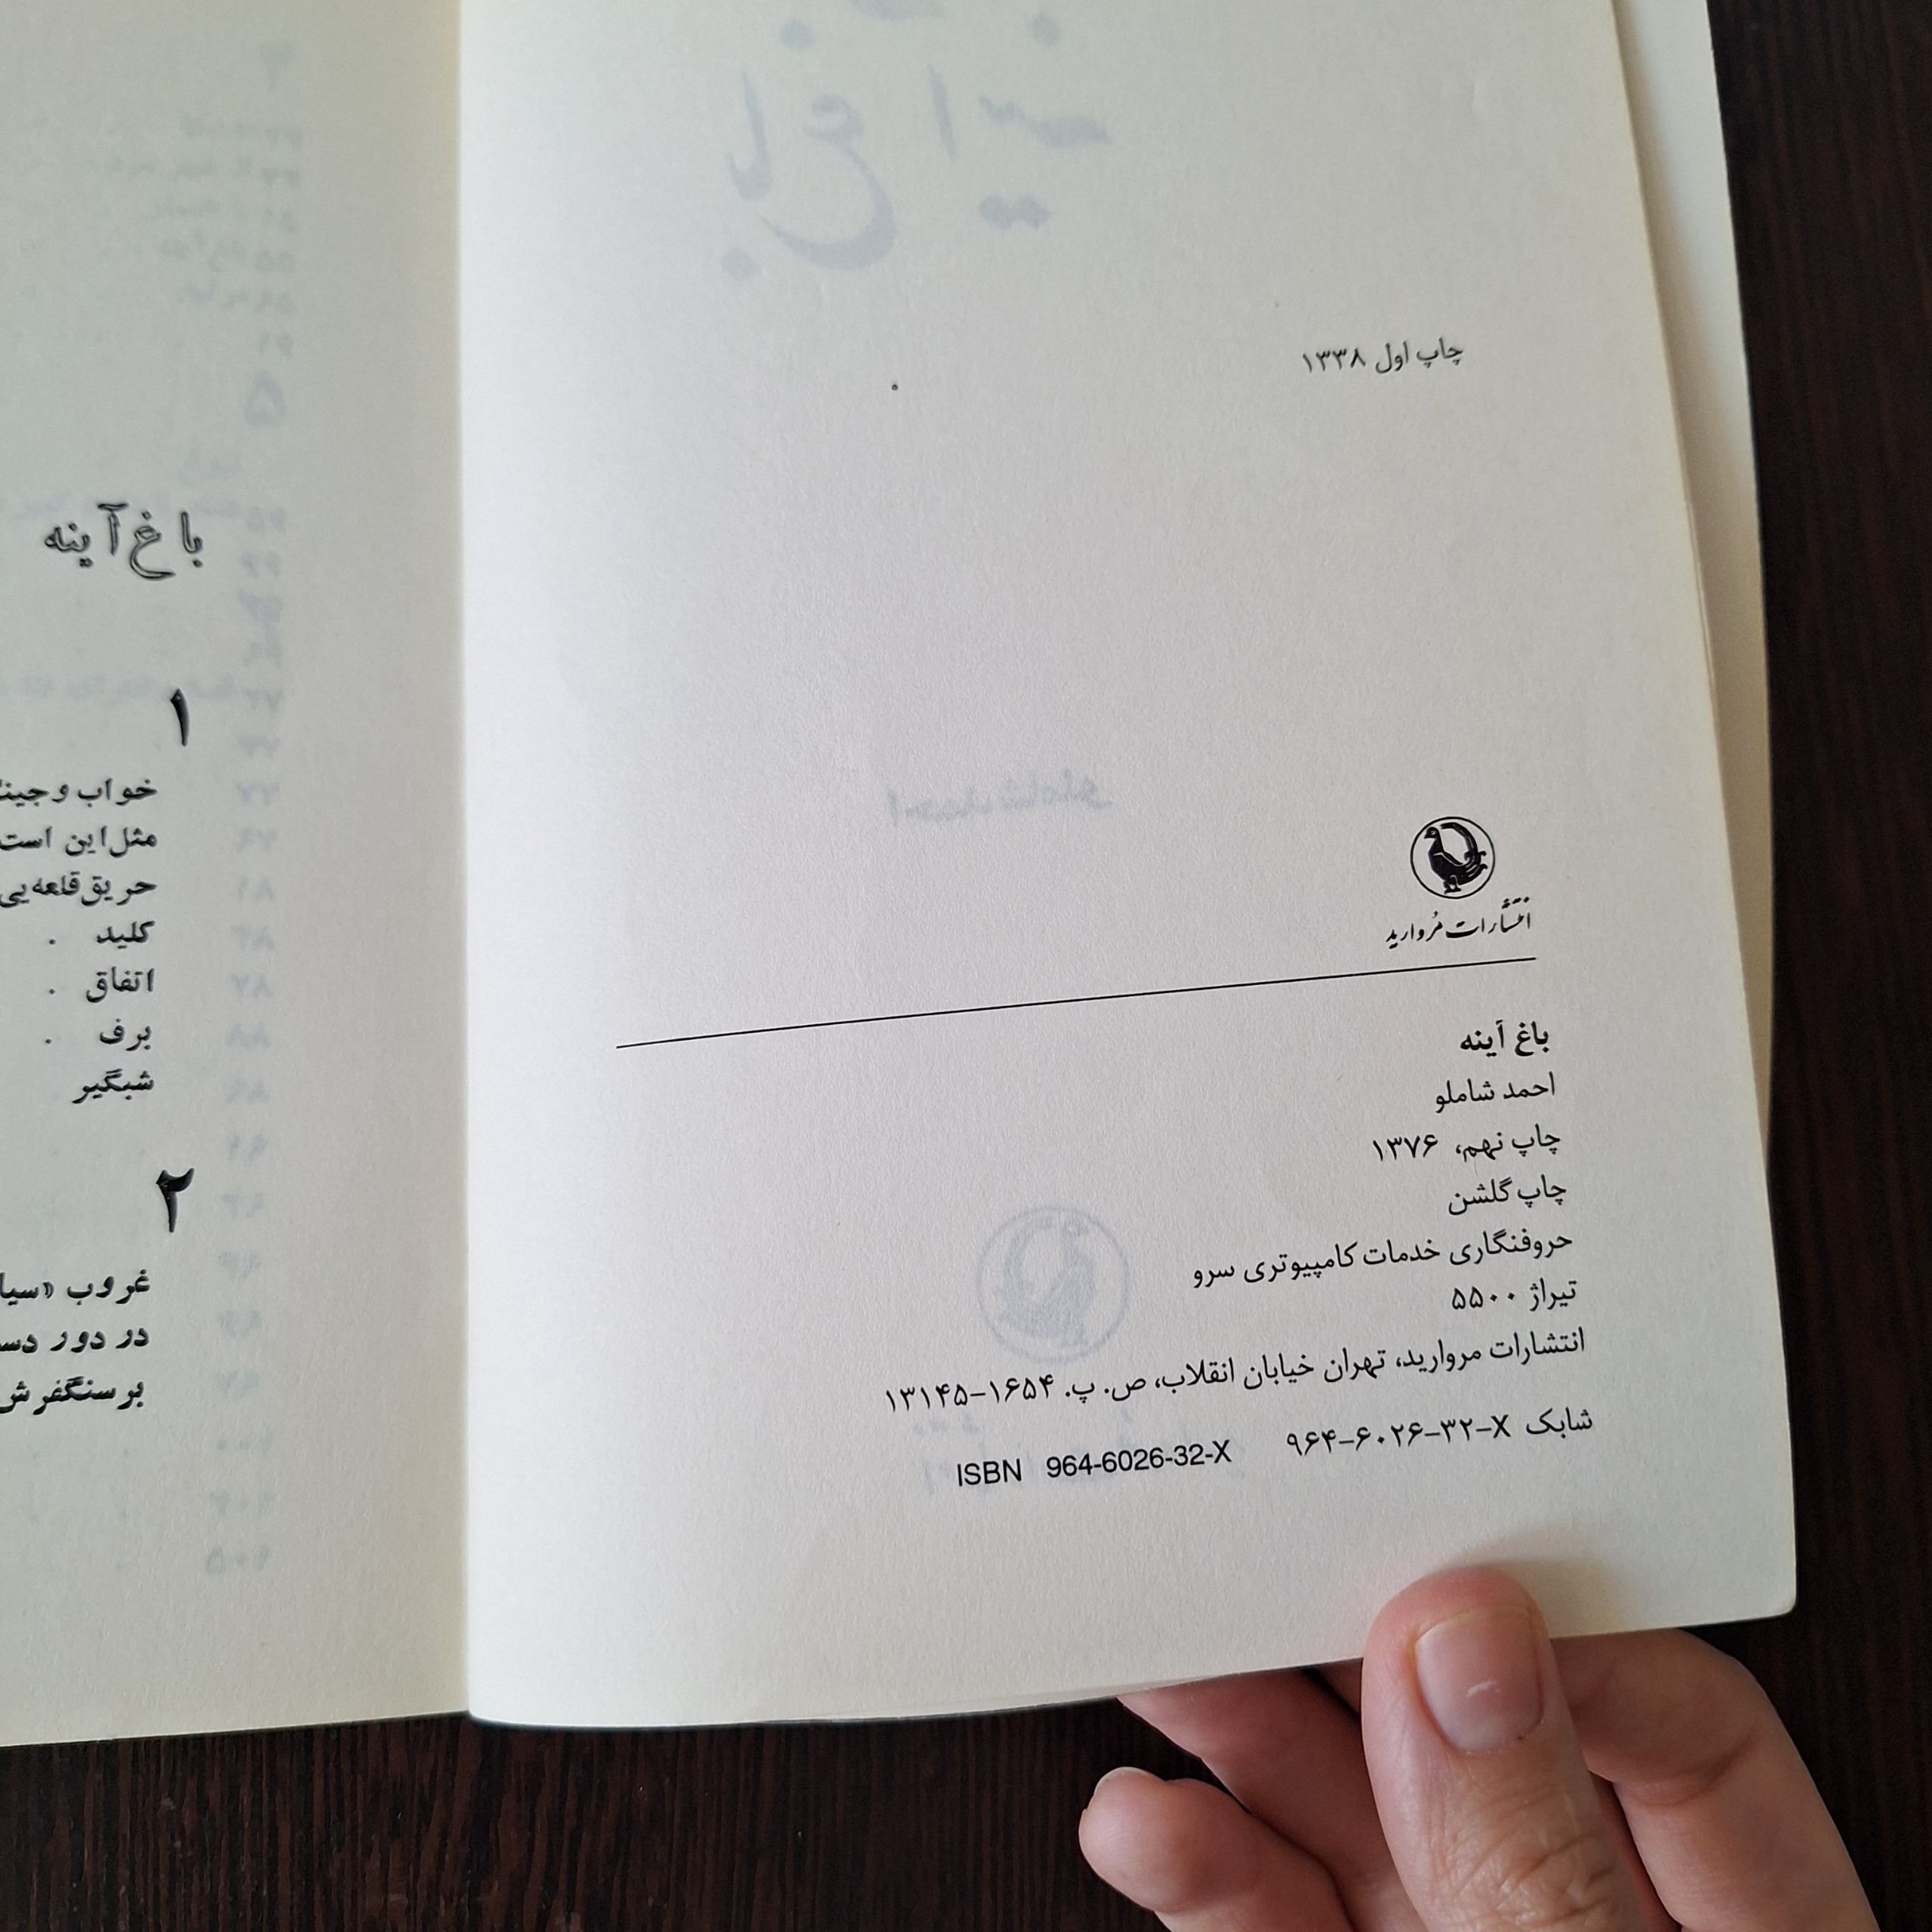 چاپ اول ۱۳۳۸
انتشارات مروارید
باغ آینه
احمد شاملو
چاپ نهم، ۱۳۷۶
چاپ گلشن
حروفنگاری خدمات کامپیوتری سرو
تیراژ ۵۵۰۰
انتشارات مروارید، تهران خیابان انقلاب، ص. پ. ۱۶۵۴–۱۳۱۴۵
شابک X–۳۲–۶۰۲۶–۹۶۴ ISBN 964-6026-32-X
باغ آینه
۱
خواب وجین
مثل این است
حریق قلعه‌یی
کلید .
اتفاق .
برف .
شبگیر
۲
غروب «سیا
در دور دس
بر سنگفرش